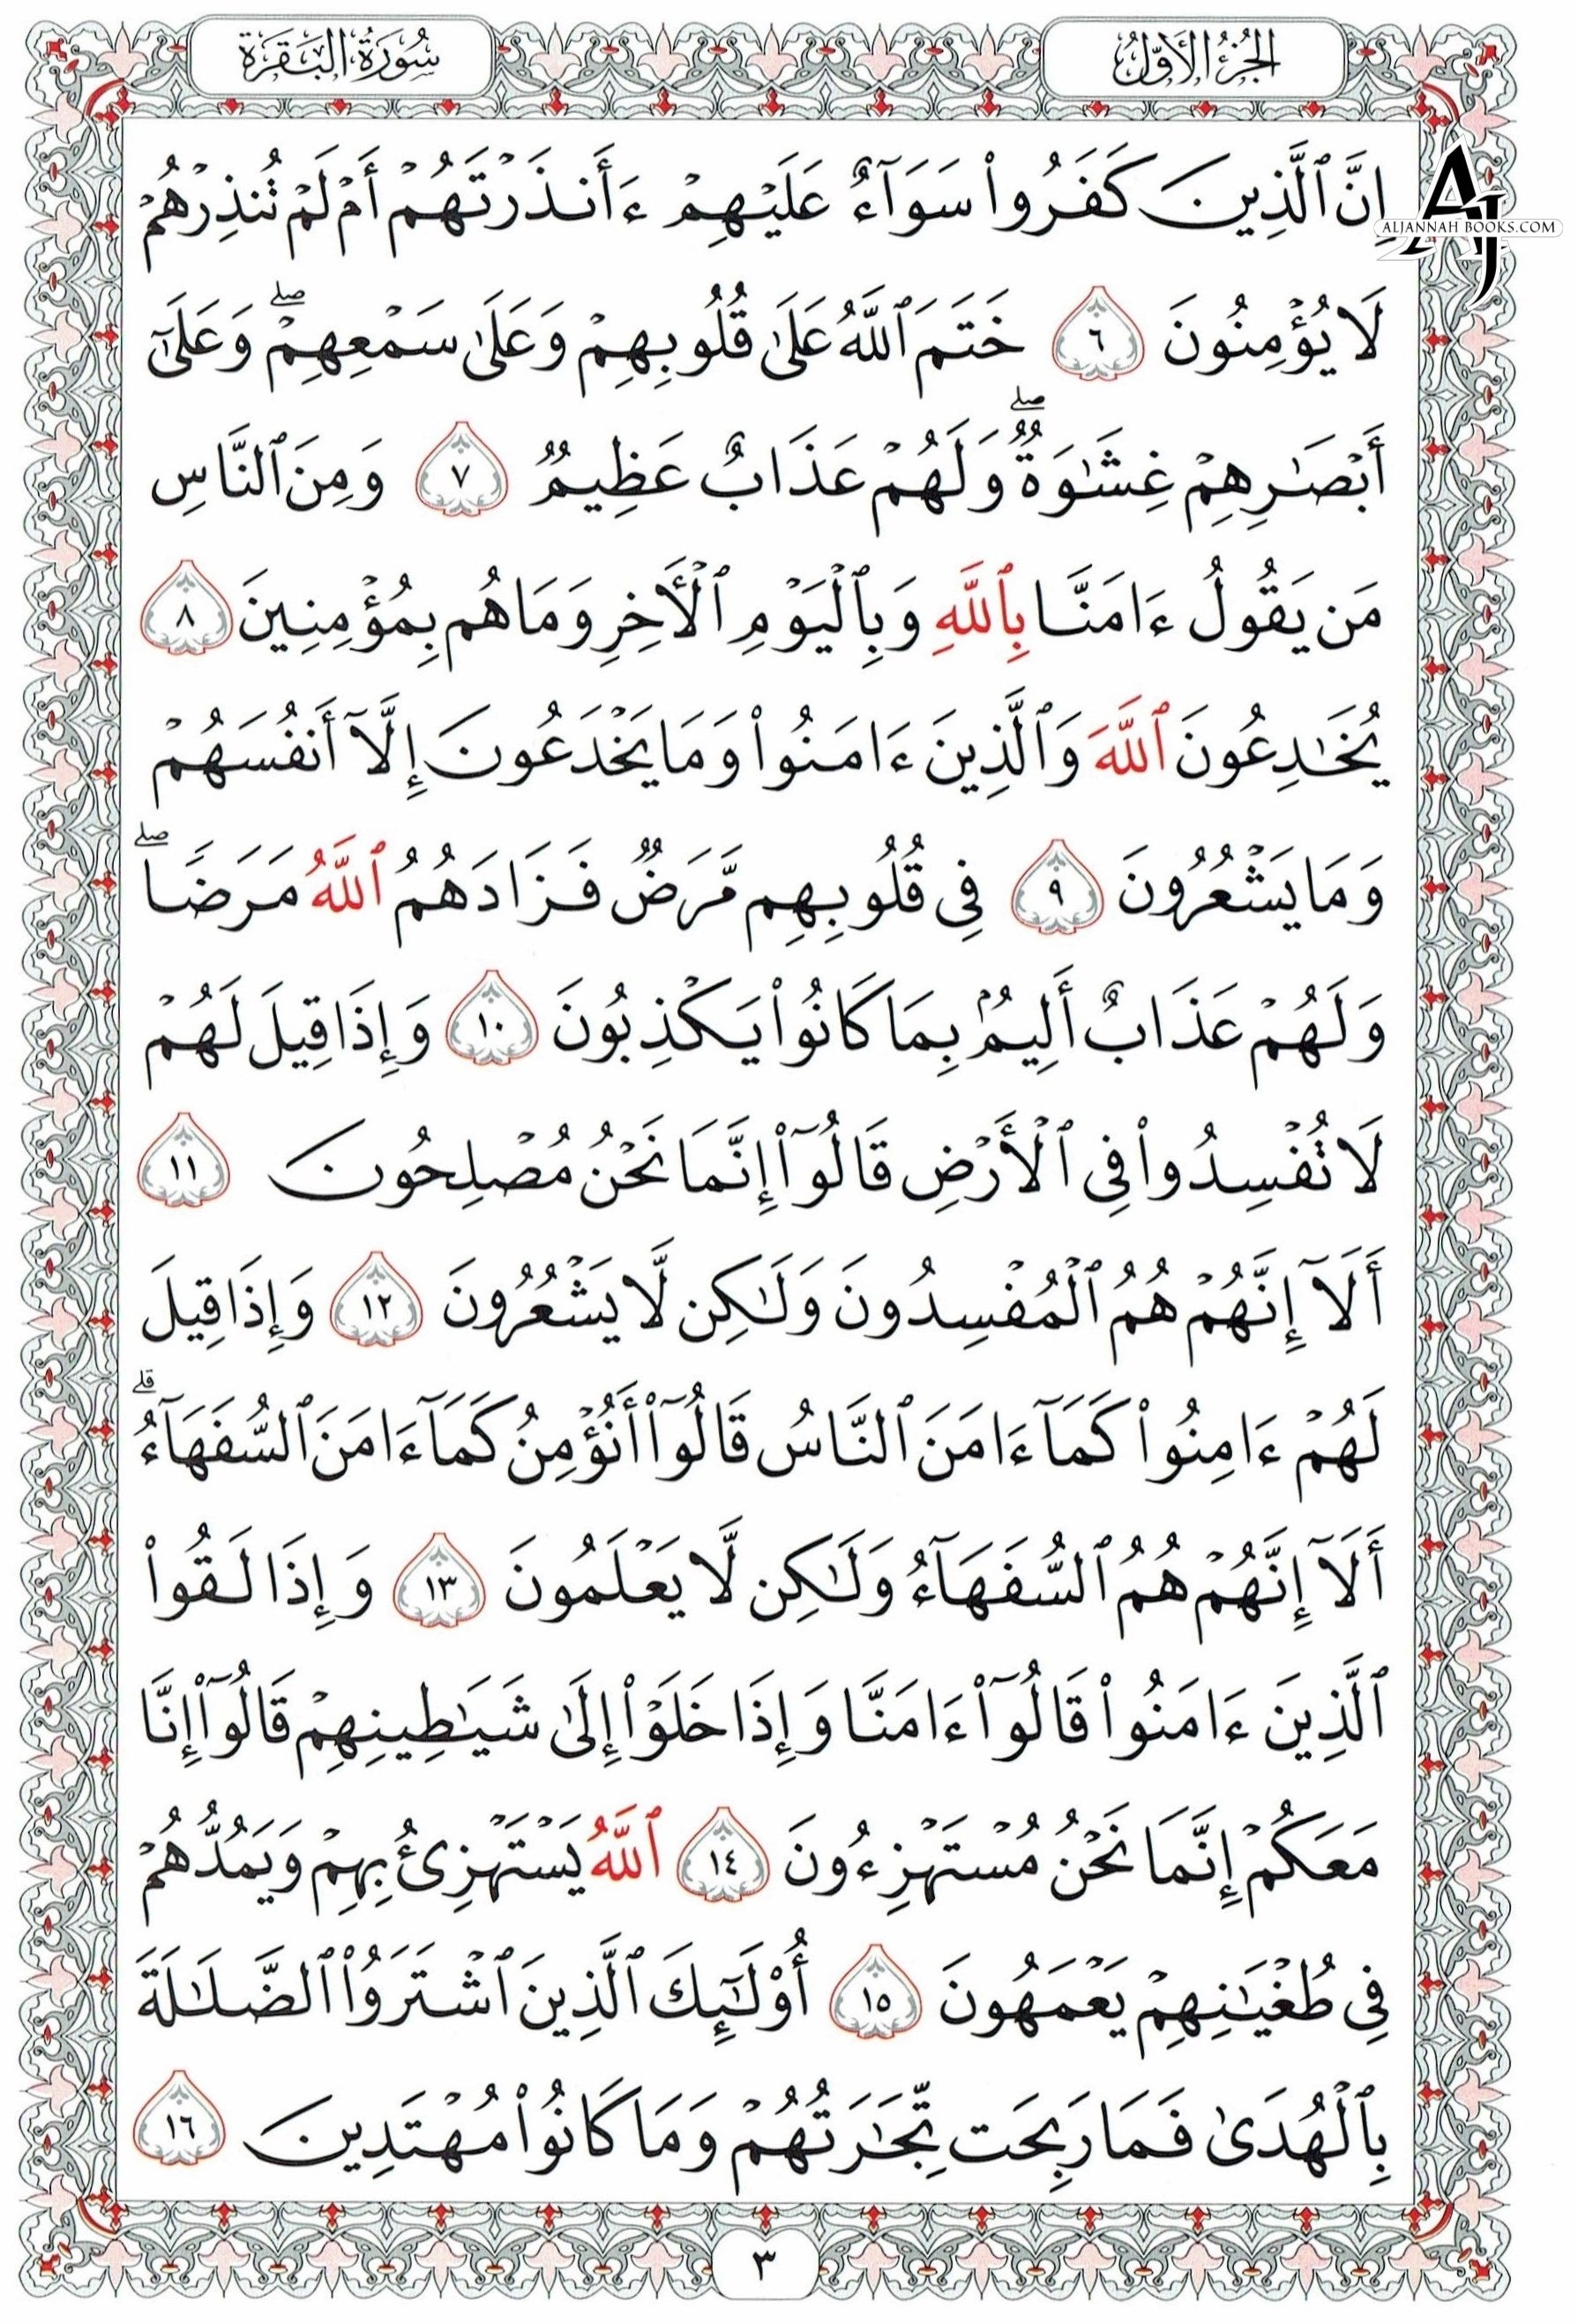 الجزء الأول
سورة البقرة
ALJANNAH BOOKS.COM
إِنَّ ٱلَّذِينَ كَفَرُوا۟ سَوَآءٌ عَلَيْهِمْ ءَأَنذَرْتَهُمْ أَمْ لَمْ تُنذِرْهُمْ
لَا يُؤْمِنُونَ ٦ خَتَمَ ٱللَّهُ عَلَىٰ قُلُوبِهِمْ وَعَلَىٰ سَمْعِهِمْ ۖ وَعَلَىٰٓ
أَبْصَـٰرِهِمْ غِشَـٰوَةٌ ۖ وَلَهُمْ عَذَابٌ عَظِيمٌ ٧ وَمِنَ ٱلنَّاسِ
مَن يَقُولُ ءَامَنَّا بِٱللَّهِ وَبِٱلْيَوْمِ ٱلْأَخِرِ وَمَا هُم بِمُؤْمِنِينَ ٨
يُخَـٰدِعُونَ ٱللَّهَ وَٱلَّذِينَ ءَامَنُوا۟ وَمَا يَخْدَعُونَ إِلَّآ أَنفُسَهُمْ
وَمَا يَشْعُرُونَ ٩ فِى قُلُوبِهِم مَّرَضٌ فَزَادَهُمُ ٱللَّهُ مَرَضًا ۖ
وَلَهُمْ عَذَابٌ أَلِيمٌۢ بِمَا كَانُوا۟ يَكْذِبُونَ ١٠ وَإِذَا قِيلَ لَهُمْ
لَا تُفْسِدُوا۟ فِى ٱلْأَرْضِ قَالُوٓا۟ إِنَّمَا نَحْنُ مُصْلِحُونَ ١١
أَلَآ إِنَّهُمْ هُمُ ٱلْمُفْسِدُونَ وَلَـٰكِن لَّا يَشْعُرُونَ ١٢ وَإِذَا قِيلَ
لَهُمْ ءَامِنُوا۟ كَمَآ ءَامَنَ ٱلنَّاسُ قَالُوٓا۟ أَنُؤْمِنُ كَمَآ ءَامَنَ ٱلسُّفَهَآءُ ۗ
أَلَآ إِنَّهُمْ هُمُ ٱلسُّفَهَآءُ وَلَـٰكِن لَّا يَعْلَمُونَ ١٣ وَإِذَا لَقُوا۟
ٱلَّذِينَ ءَامَنُوا۟ قَالُوٓا۟ ءَامَنَّا وَإِذَا خَلَوْا۟ إِلَىٰ شَيَـٰطِينِهِمْ قَالُوٓا۟ إِنَّا
مَعَكُمْ إِنَّمَا نَحْنُ مُسْتَهْزِءُونَ ١٤ ٱللَّهُ يَسْتَهْزِئُ بِهِمْ وَيَمُدُّهُمْ
فِى طُغْيَـٰنِهِمْ يَعْمَهُونَ ١٥ أُو۟لَـٰٓئِكَ ٱلَّذِينَ ٱشْتَرَوُا۟ ٱلضَّلَـٰلَةَ
بِٱلْهُدَىٰ فَمَا رَبِحَت تِّجَـٰرَتُهُمْ وَمَا كَانُوا۟ مُهْتَدِينَ ١٦
٣